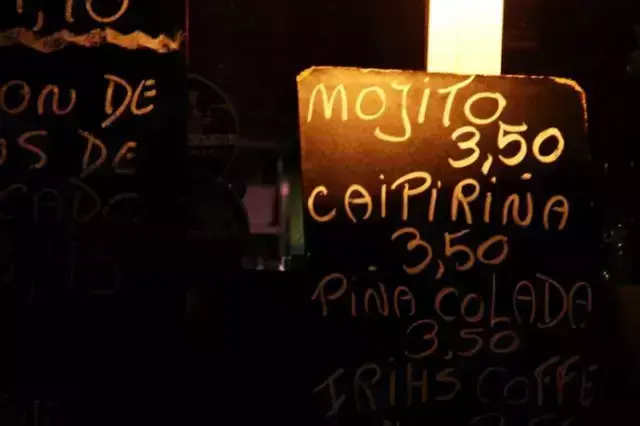 1,10
ON DE
OS DE
CADO
MOJITO
3,50
CAIPIRINA
3,50
PINA COLADA
3,50
IRIHS COFFE